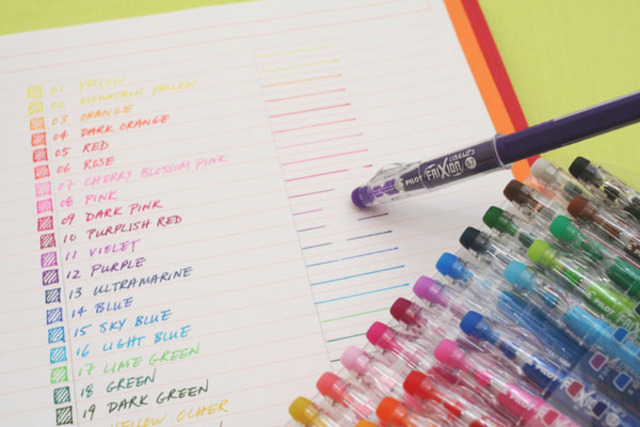 01 YELLOW
02 MOUNTAIN YELLOW
03 ORANGE
04 DARK ORANGE
05 RED
06 ROSE
07 CHERRY BLOSSOM PINK
08 PINK
09 DARK PINK
10 PURPLISH RED
11 VIOLET
12 PURPLE
13 ULTRAMARINE
14 BLUE
15 SKY BLUE
16 LIGHT BLUE
17 LIME GREEN
18 GREEN
19 DARK GREEN
YELLOW OCHER
PILOT FRIXION